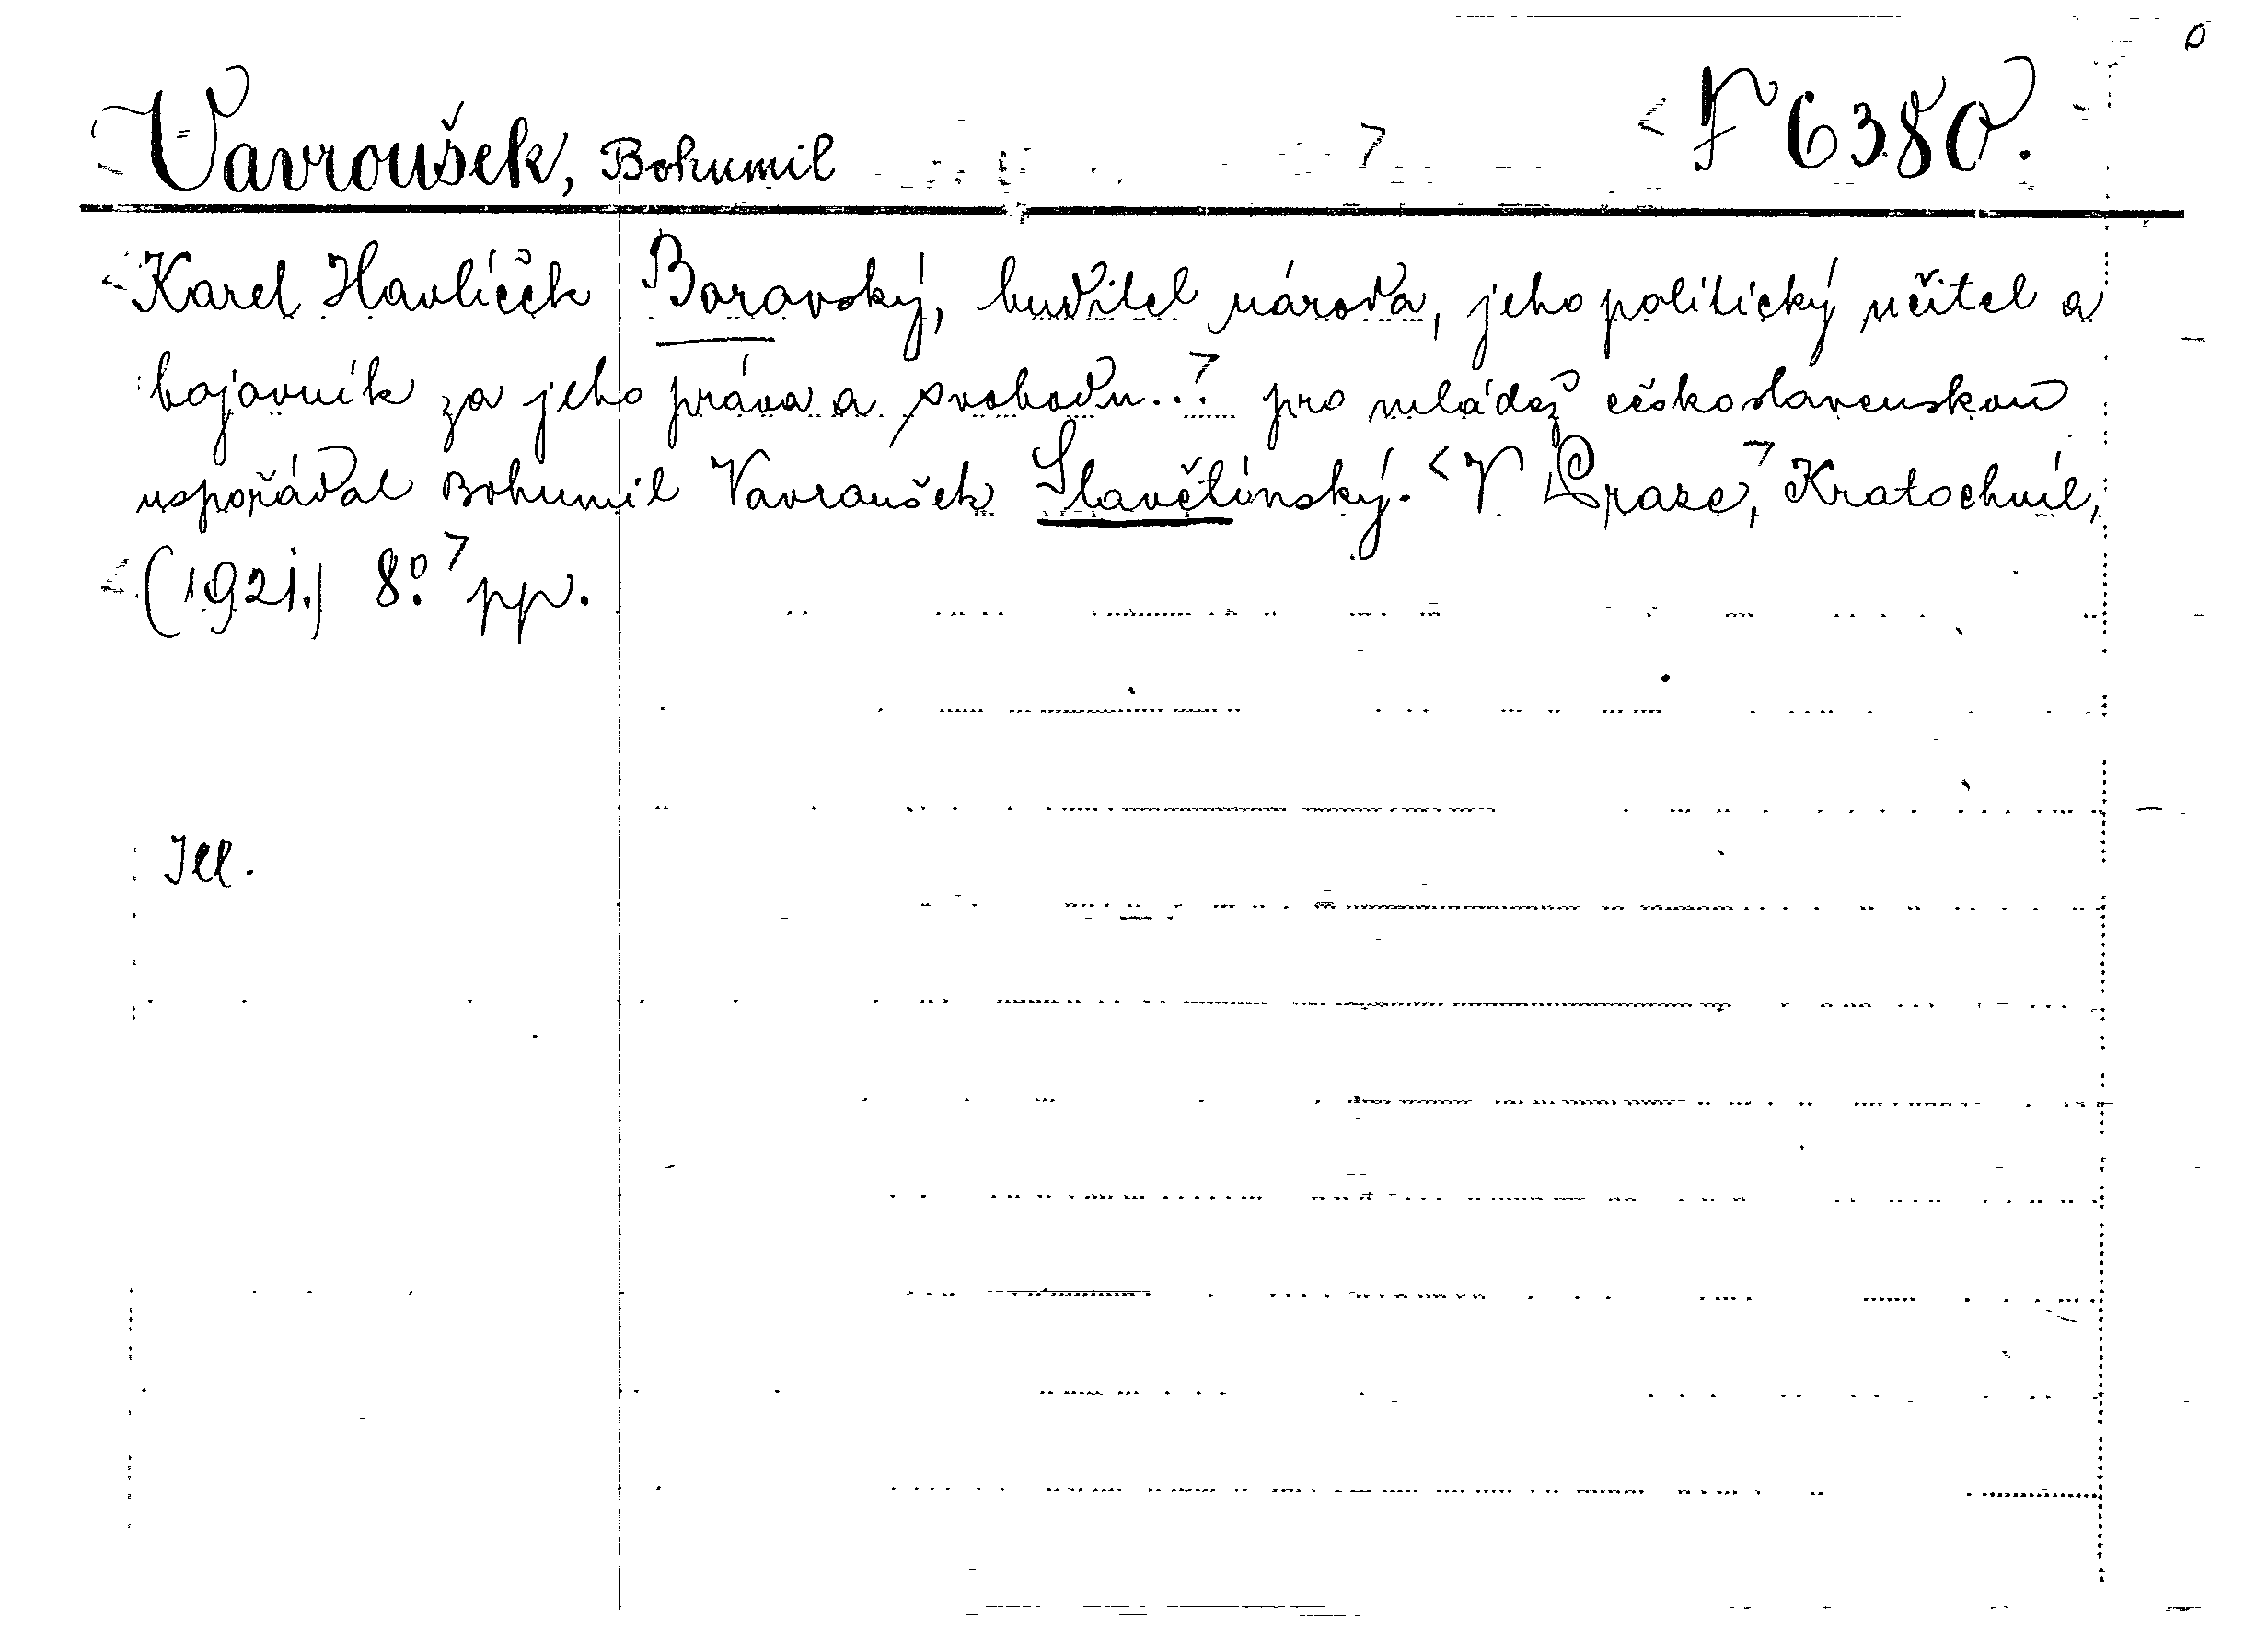 Vavroušek, Bohumil F 6380.
Karel Havlíček Borovský, buditel národa, jeho politický učitel a
bojovník za jeho práva a svobodu... pro mládež československou
uspořádal Bohumil Vavroušek Slavětínský. V Praze, Kratochvíl,
(1921.) 8°. pp.
Ill.